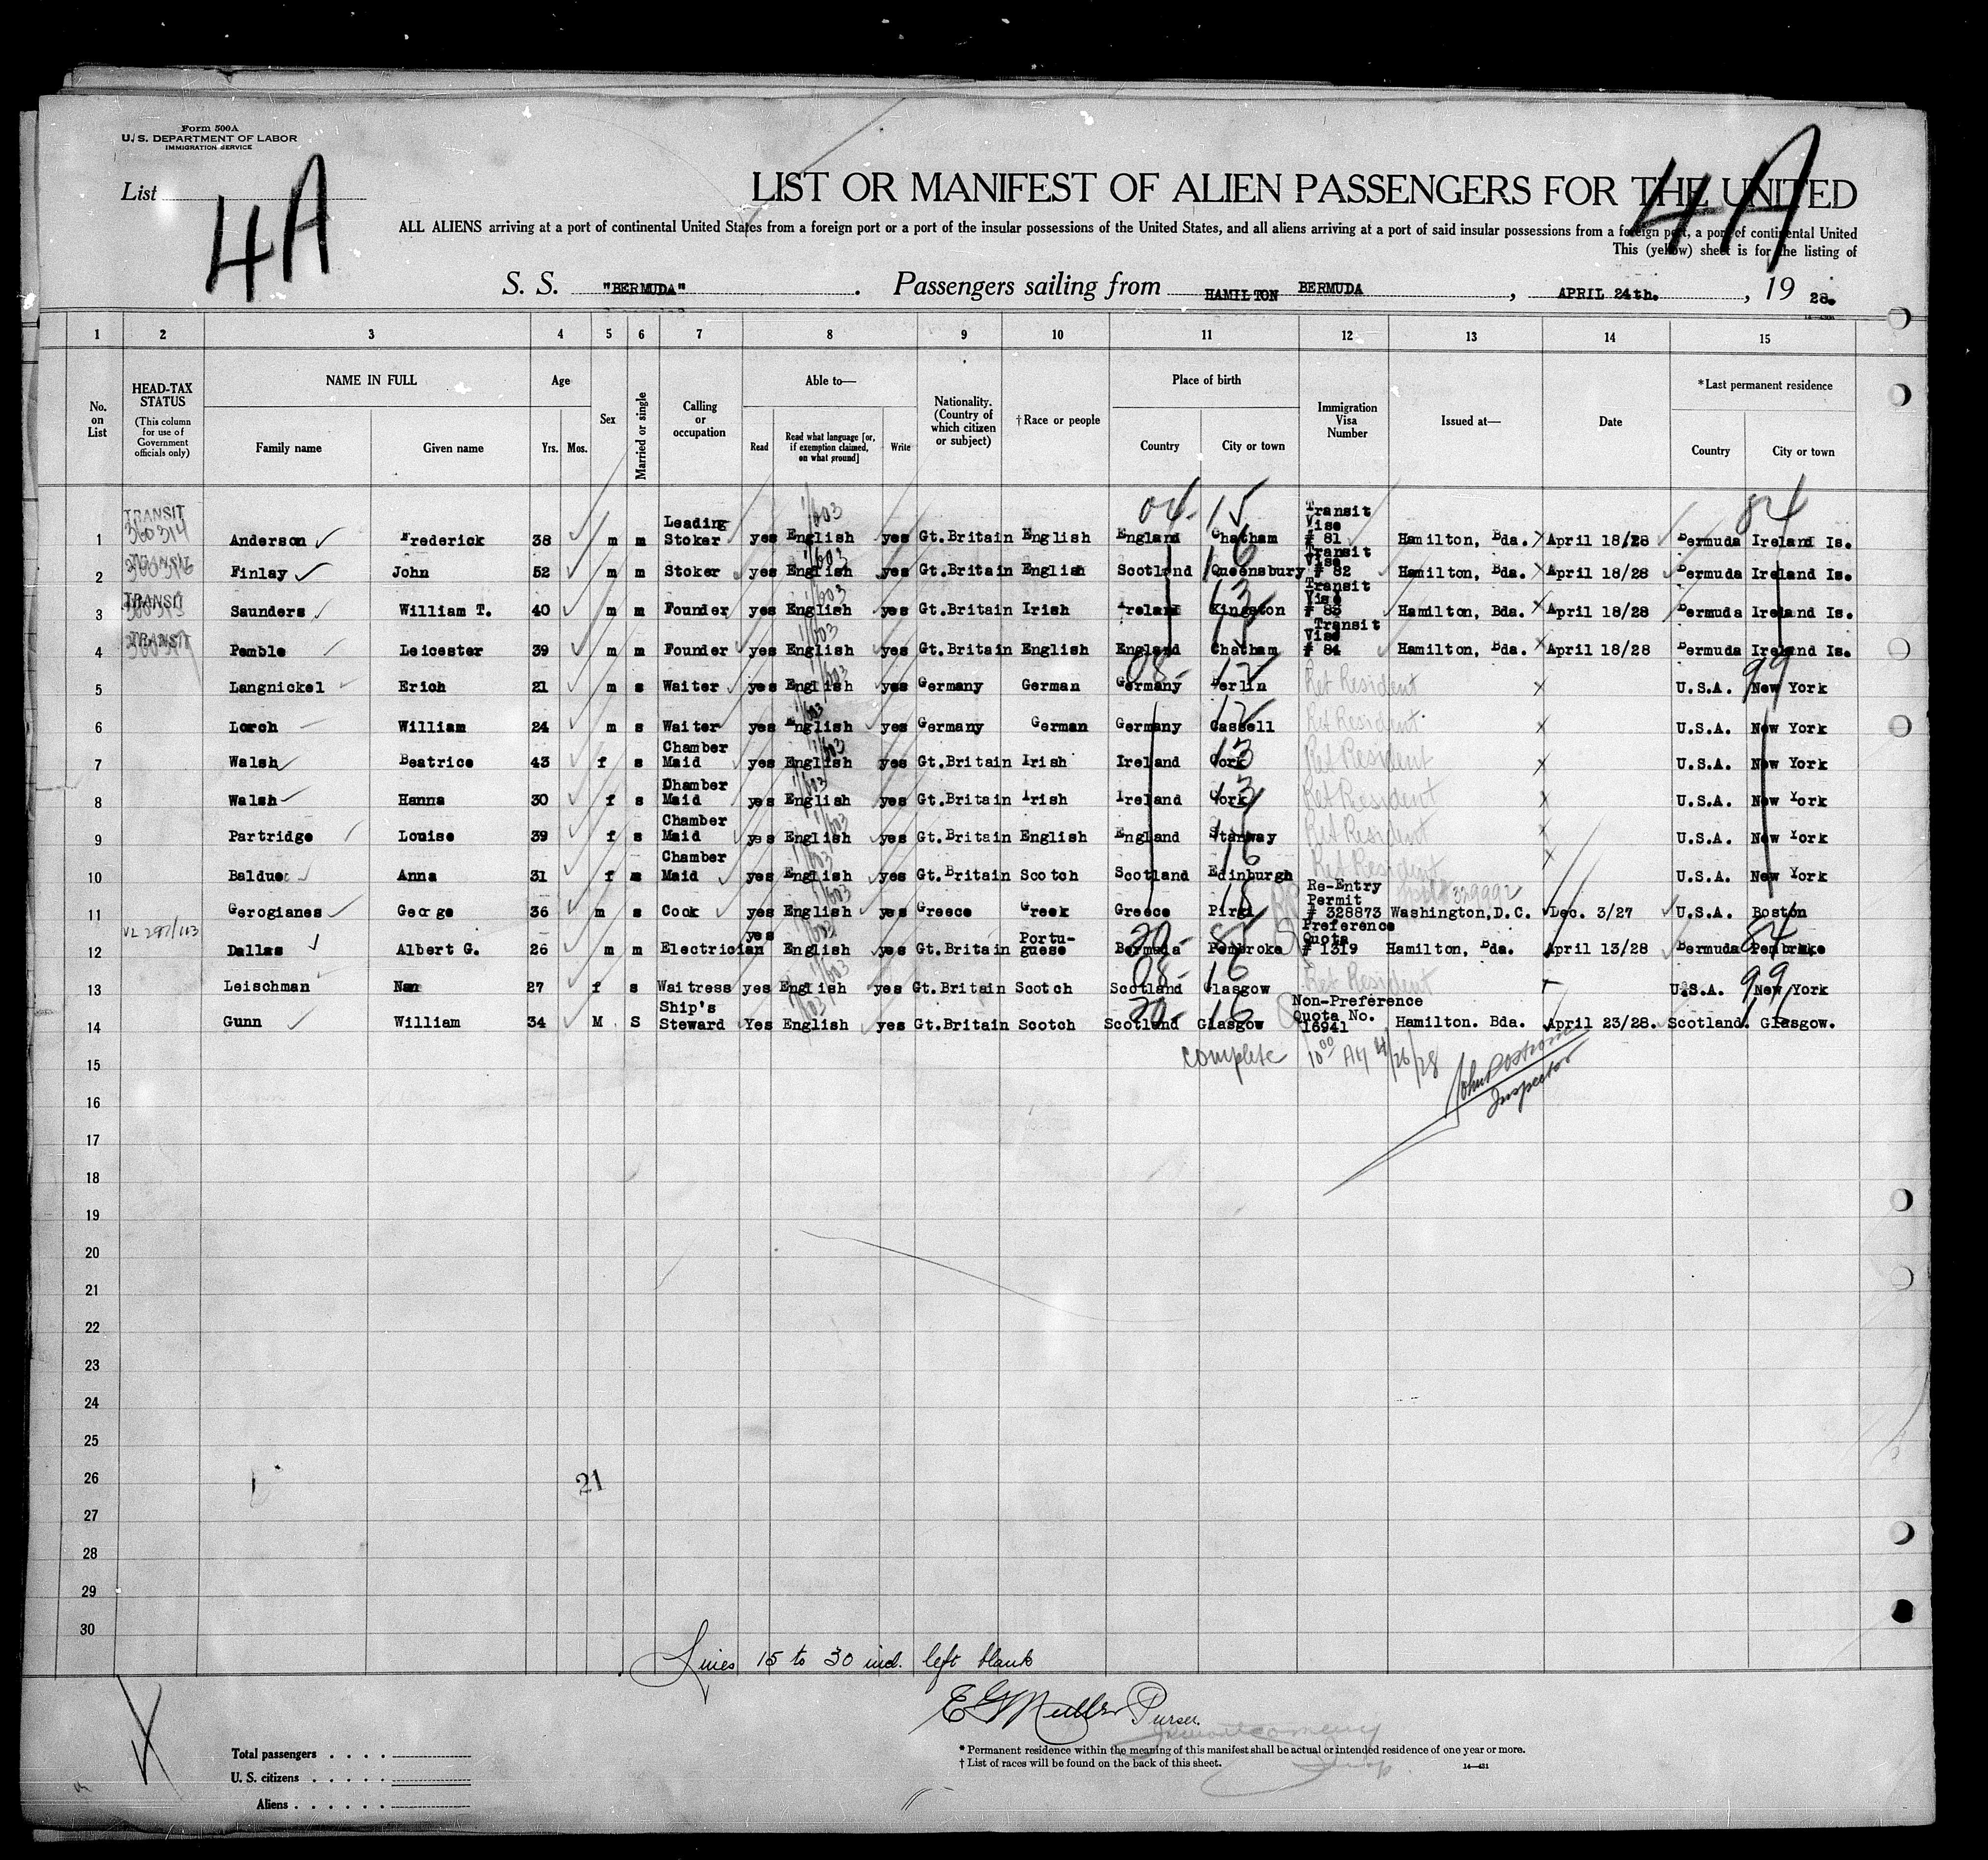 Form 500A
U. S. DEPARTMENT OF LABOR
IMMIGRATION SERVICE
List 4A
4A
LIST OR MANIFEST OF ALIEN PASSENGERS FOR THE UNITED
ALL ALIENS arriving at a port of continental United States from a foreign port or a port of the insular possessions of the United States, and all aliens arriving at a port of said insular possessions from a foreign port, a port of continental United
This (yellow) sheet is for the listing of
S. S. "BERMUDA". Passengers sailing from HAMILTON BERMUDA, APRIL 24th., 19 28.
1 2 3 4 5 6 7 8 9 10 11 12 13 14 15
No. on List
HEAD-TAX STATUS (This column for use of Government officials only)
NAME IN FULL Family name Given name
Age Yrs. Mos.
Sex
Married or single
Calling or occupation
Able to— Read Read what language [or, if exemption claimed, on what ground] Write
Nationality. (Country of which citizen or subject)
†Race or people
Place of birth Country City or town
Immigration Visa Number
Issued at—
Date
*Last permanent residence Country City or town
04- 15 84
1 TRANSIT 360314 Anderson Frederick 38 m m Leading Stoker yes English yes Gt.Britain English England Chatham Transit Vise # 81 Hamilton, Bda. April 18/28 Bermuda Ireland Is.
2 TRANSIT Finlay John 52 m m Stoker yes English yes Gt.Britain English Scotland Queensbury Transit Vise # 82 Hamilton, Bda. April 18/28 Bermuda Ireland Is.
3 TRANSIT Saunders William T. 40 m m Founder yes English yes Gt.Britain Irish Ireland Kingston Transit Vise # 83 Hamilton, Bda. April 18/28 Bermuda Ireland Is.
4 TRANSIT Pemble Leicester 39 m m Founder yes English yes Gt.Britain English England Chatham Transit Vise # 84 Hamilton, Bda. April 18/28 Bermuda Ireland Is.
5 Langnickel Erich 21 m s Waiter yes English yes Germany German Germany Berlin Ret Resident U.S.A. New York
6 Lorch William 24 m s Waiter yes English yes Germany German Germany Cassell Ret Resident U.S.A. New York
7 Walsh Beatrice 43 f s Chamber Maid yes English yes Gt.Britain Irish Ireland Cork Ret Resident U.S.A. New York
8 Walsh Hanna 30 f s Chamber Maid yes English yes Gt.Britain Irish Ireland Cork Ret Resident U.S.A. New York
9 Partridge Louise 39 f s Chamber Maid yes English yes Gt.Britain English England Stanway Ret Resident U.S.A. New York
10 Balduc Anna 31 f Chamber Maid yes English yes Gt.Britain Scotch Scotland Edinburgh Ret Resident U.S.A. New York
11 Gerogianes George 36 m s Cook yes English yes Greece Greek Greece Pirgi Re-Entry Permit # 328873 Washington,D.C. Dec. 3/27 U.S.A. Boston
12 Dallas Albert G. 26 m m Electrician yes English yes Gt.Britain Portuguese Bermuda Pembroke Preference Quota # 1319 Hamilton, Bda. April 13/28 Bermuda Pembroke
13 Leischman Nan 27 f s Waitress yes English yes Gt.Britain Scotch Scotland Glasgow Ret Resident U.S.A. New York
14 Gunn William 34 M S Ship's Steward Yes English yes Gt.Britain Scotch Scotland Glasgow Non-Preference Quota No. 16941 Hamilton. Bda. April 23/28. Scotland. Glasgow.
15 complete 10 00 AM 4/26/28
Inspector
16
17
18
19
20
21
22
23
24
25
26 21
27
28
29
30
Lines 15 to 30 incl. left blank
Purser.
Total passengers
U. S. citizens
Aliens
* Permanent residence within the meaning of this manifest shall be actual or intended residence of one year or more.
† List of races will be found on the back of this sheet.
14—431